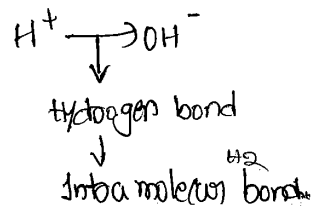 H⁺ → OH⁻
↓
Hydrogen bond
↓
H2
Intra molecular bond